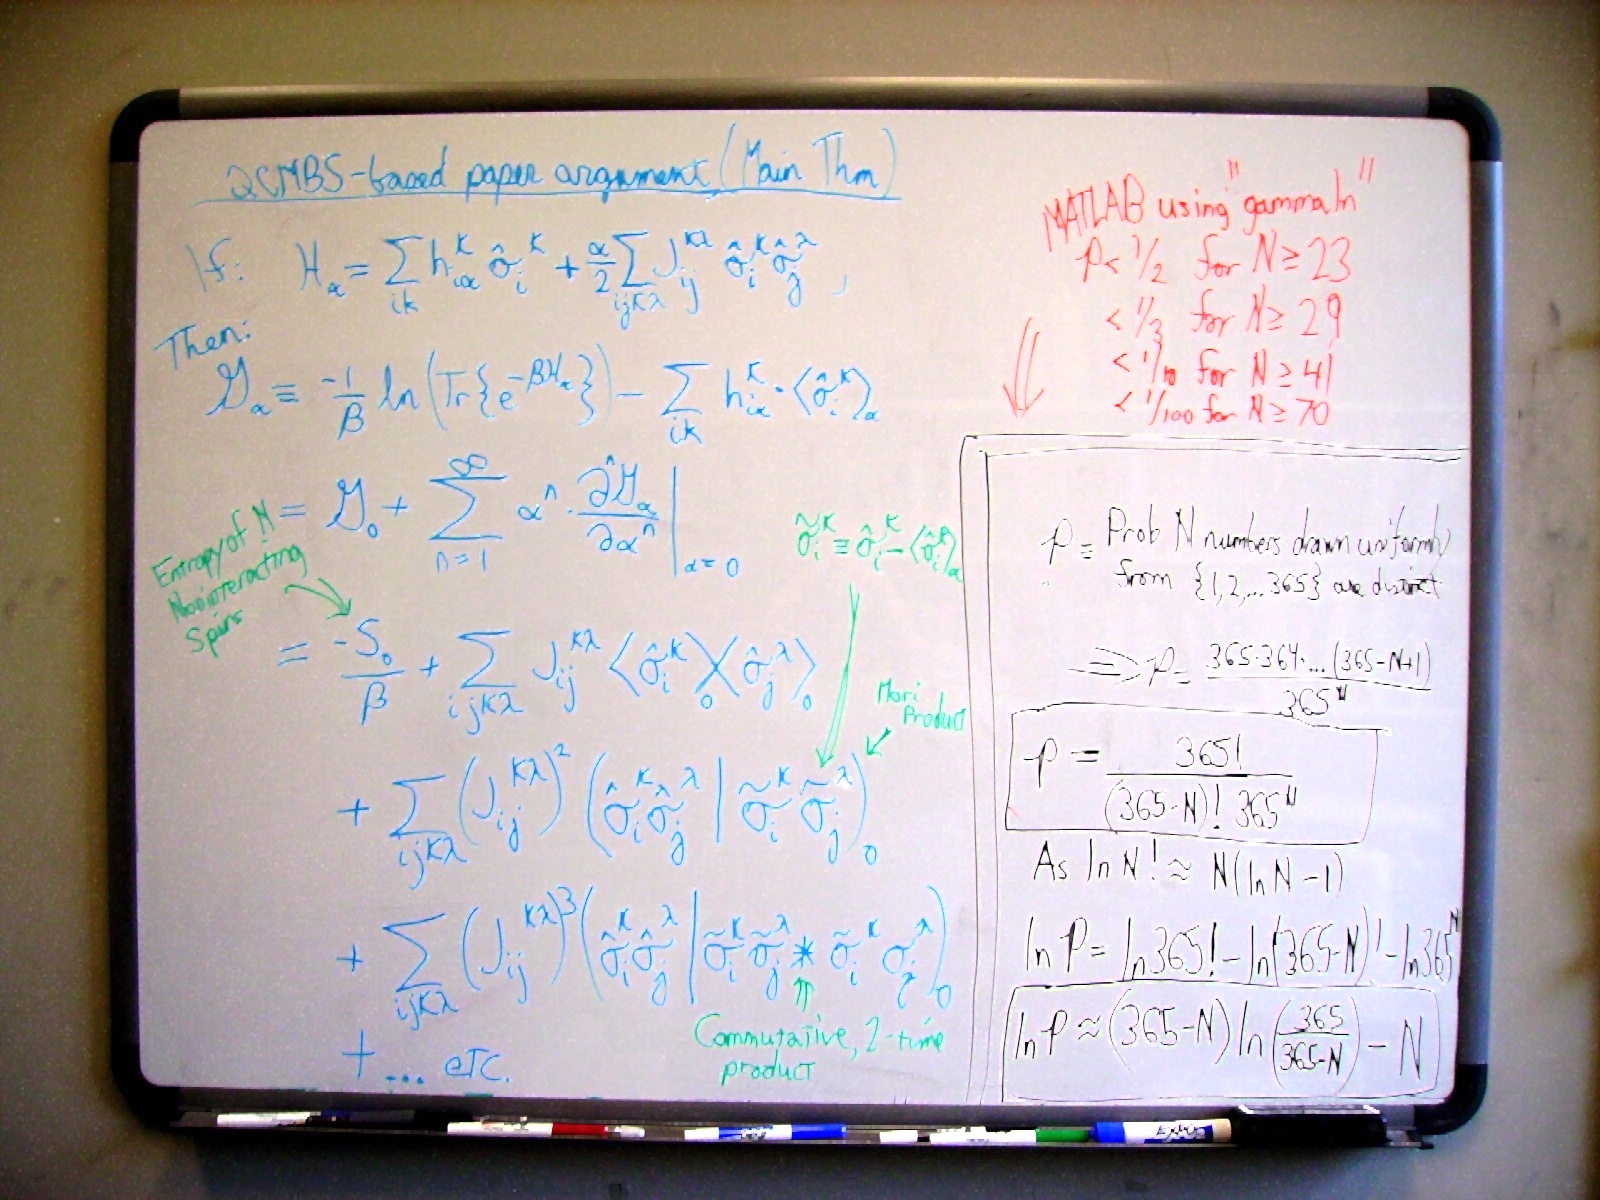 QCMBS-based paper argument (Main Thm)
If: H_α = Σ_{ik} h_{iα}^κ σ̂_i^κ + α/2 Σ_{ijκλ} J_{ij}^{κλ} σ̂_i^κ σ̂_j^λ ,
Then:
𝒢_α ≡ -1/β ln(Tr{e^{-βH_α}}) - Σ_{ik} h_{iα}^κ · ⟨σ̂_i^κ⟩_α
= 𝒢_0 + Σ_{n=1}^{∞} α^n · ∂^n𝒢_α/∂α^n |_{α=0}
σ̃_i^κ ≡ σ̂_i^κ - ⟨σ̂_i^κ⟩_α
Entropy of N
Noninteracting
Spins
= -S_0/β + Σ_{ijκλ} J_{ij}^{κλ} ⟨σ̂_i^κ⟩_0 ⟨σ̂_j^λ⟩_0
Mori
Product
+ Σ_{ijκλ} (J_{ij}^{κλ})^2 (σ̂_i^κ σ̂_j^λ | σ̃_i^κ σ̃_j^λ)_0
+ Σ_{ijκλ} (J_{ij}^{κλ})^3 (σ̂_i^κ σ̂_j^λ | σ̃_i^κ σ̃_j^λ * σ̃_i^κ σ_j^λ)_0
Commutative, 2-time
product
+ ... etc.
MATLAB using "gammaln"
p < 1/2 for N ≥ 23
< 1/3 for N ≥ 29
< 1/10 for N ≥ 41
< 1/100 for N ≥ 70
p = Prob N numbers drawn uniformly
from {1,2,...365} are distinct
⇒ p = 365·364·...(365-N+1)/365^N
p = 365!/((365-N)! 365^N)
As ln N! ≈ N(ln N - 1)
ln P = ln 365! - ln(365-N)! - ln 365^N
ln P ≈ (365-N) ln(365/(365-N)) - N
EXPO